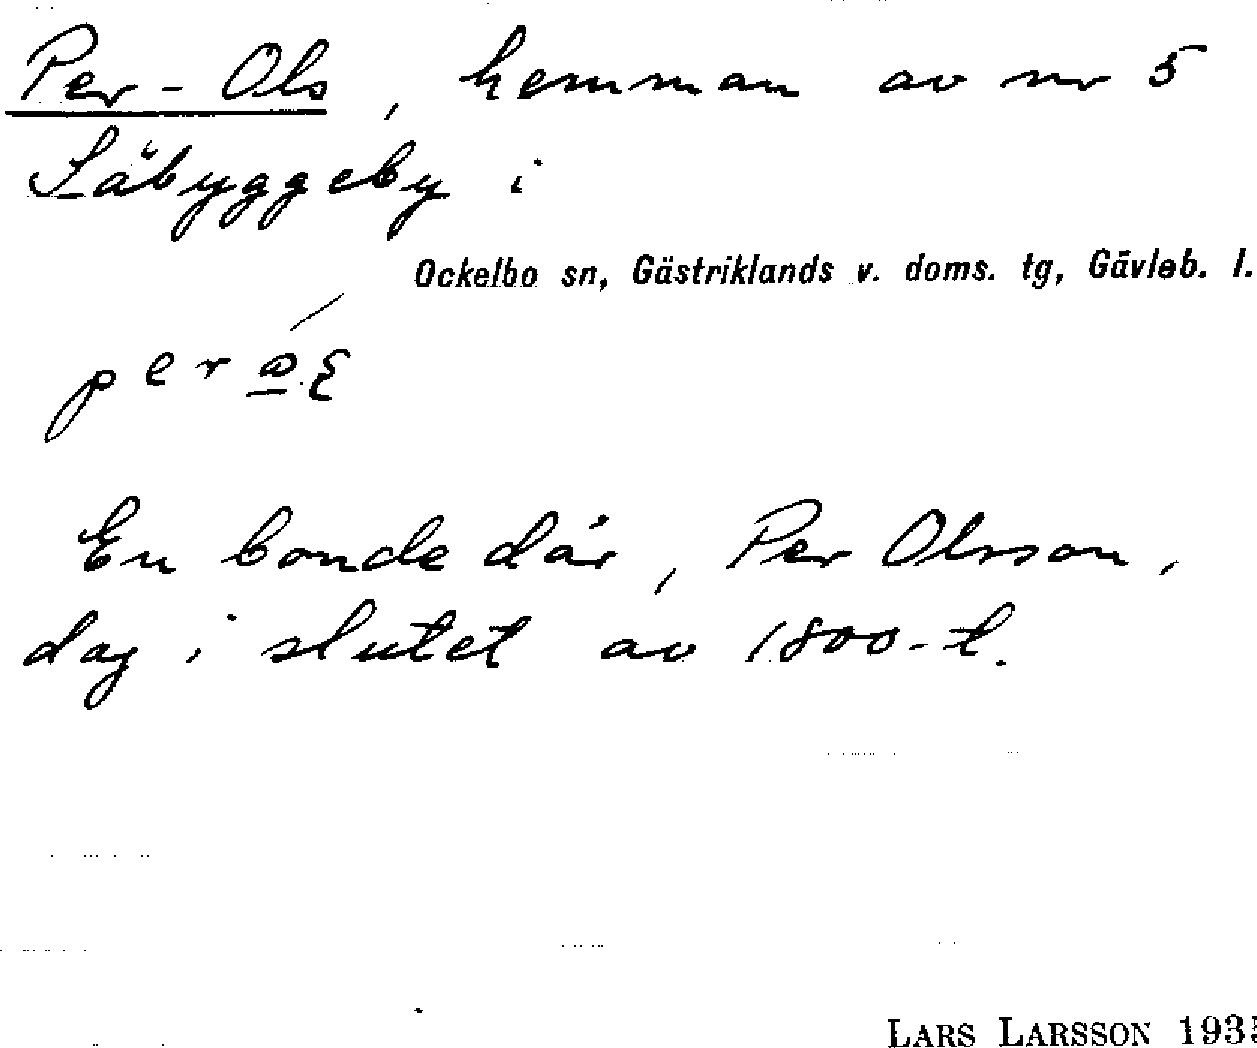 Per-Ols, hemman av nr 5
Säbyggeby i
Ockelbo sn, Gästriklands v. doms. tg, Gävleb. l.
En bonde där, Per Olsson,
dog i slutet av 1800-t.
LARS LARSSON